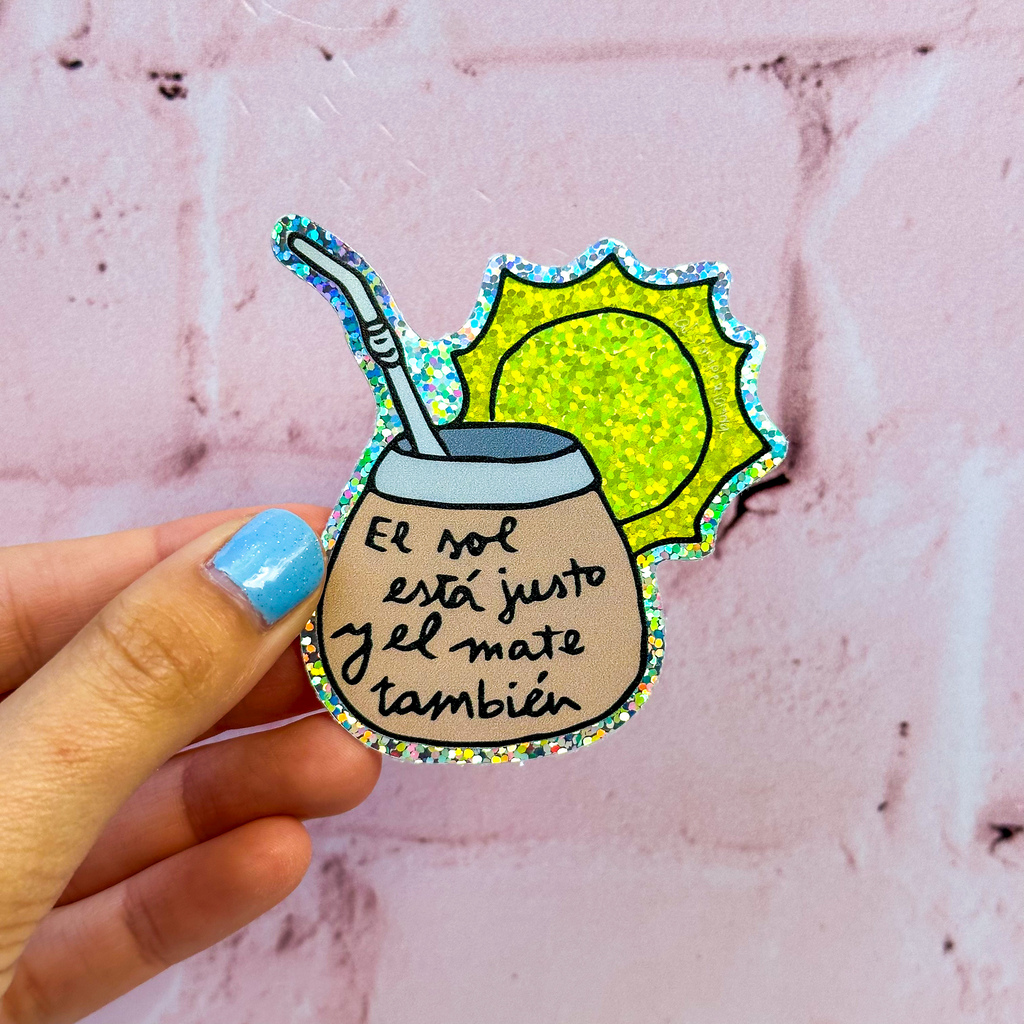 El sol
está justo
y el mate
también